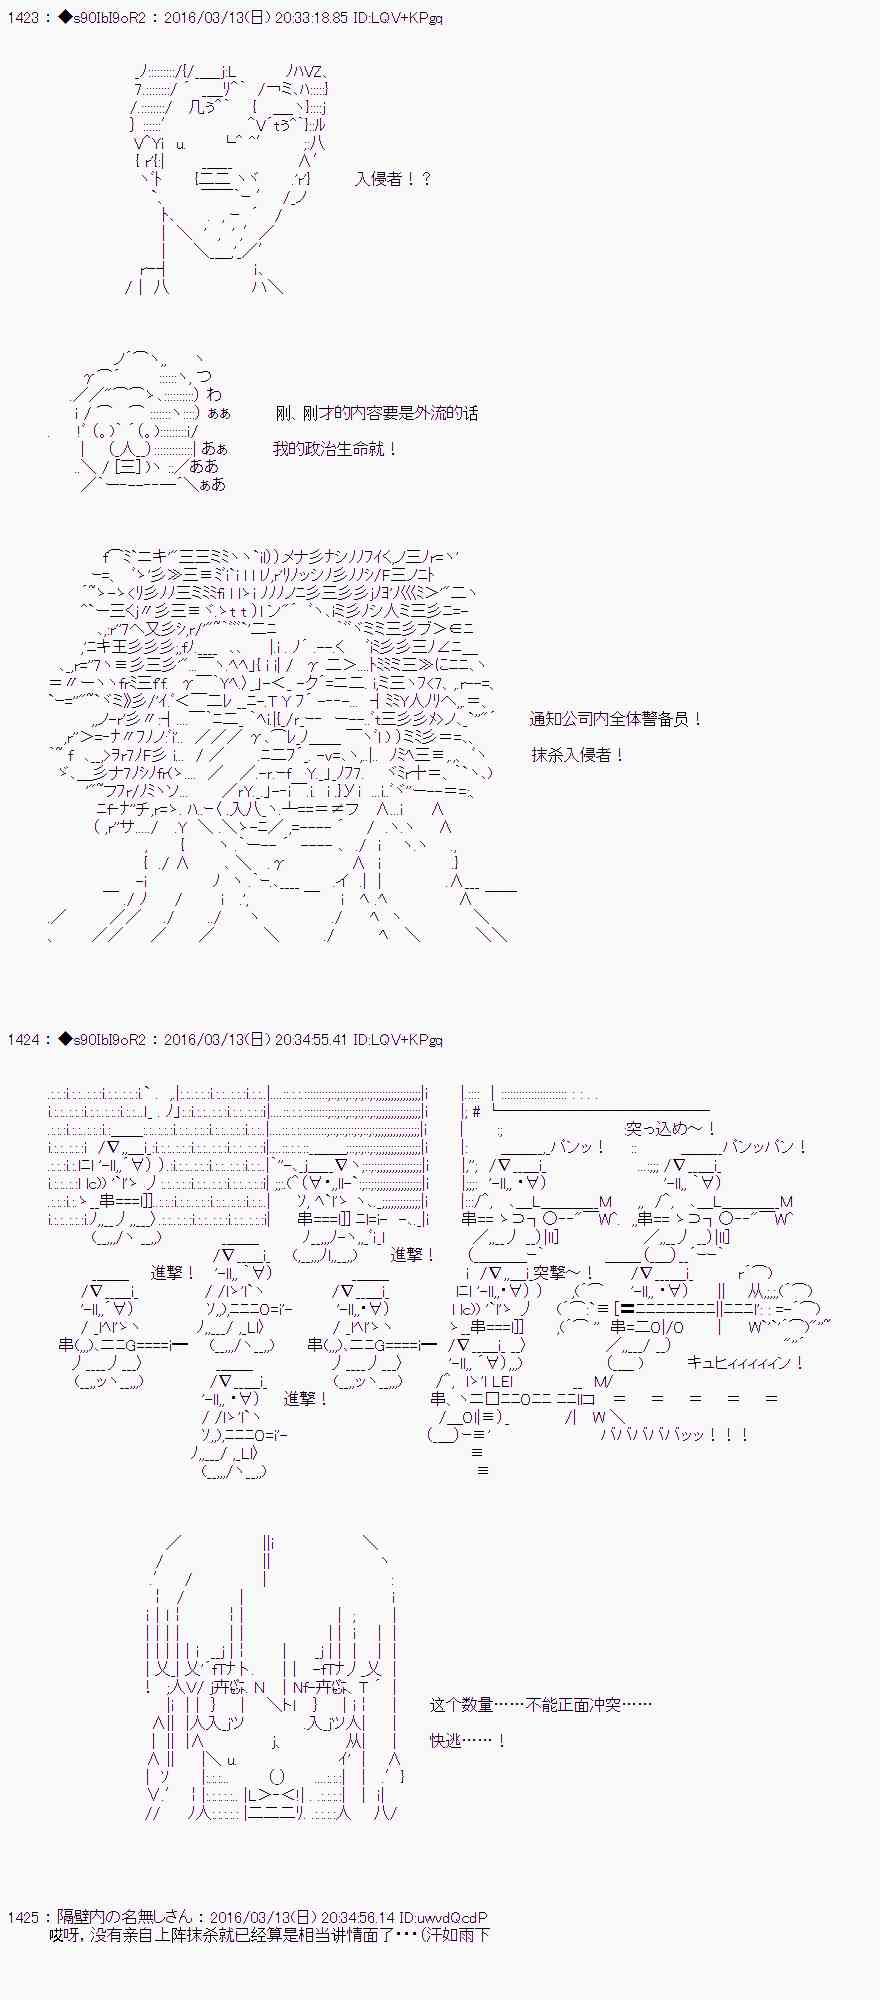 1423 : ◆s90IbI9oR2 : 2016/03/13(日) 20:33:18.85 ID:LQV+KPgq
入侵者！？
刚、刚才的内容要是外流的话
我的政治生命就！
通知公司内全体警备员！
抹杀入侵者！
1424 : ◆s90IbI9oR2 : 2016/03/13(日) 20:34:55.41 ID:LQV+KPgq
突っ込め～！
バンッ！
バンッバン！
進撃！
進撃！
突撃～！
進撃！
キュヒィィィィィン！
ババババババッッ！！！
这个数量……不能正面冲突……
快逃……！
1425 : 隔壁内の名無しさん : 2016/03/13(日) 20:34:56.14 ID:uwvdQcdP
哎呀，没有亲自上阵抹杀就已经算是相当讲情面了・・・（汗如雨下